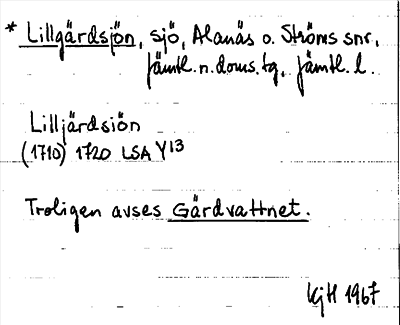 * Lillgärdsjön, sjö, Alanäs o. Ströms snr,
Jämtl. n. doms. tg, Jämtl. l.
Lilljärdsiön
(1710) 1720 LSA Y13
Troligen avses Gärdvattnet.
KjH 1967